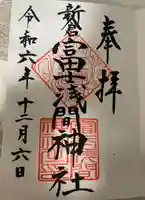 奉拝
新倉
富士浅間神社
令和六年十二月六日